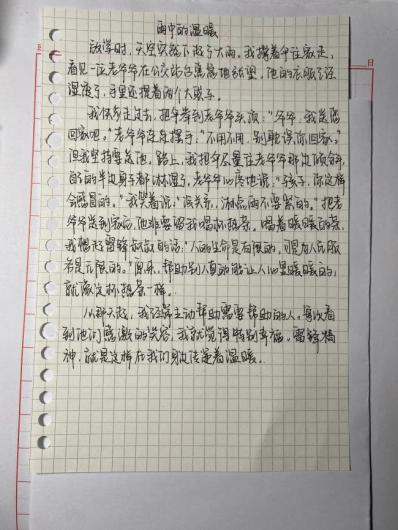 雨中的温暖
放学时,天空突然下起了大雨。我撑着伞往家走,
看见一位老爷爷在公交站台焦急地张望,他的衣服已经
湿透了,手里还提着两个大袋子。
我快步走过去,把伞举到老爷爷头顶:“爷爷,我送您
回家吧。”老爷爷连连摆手:“不用不用,别耽误你回家。”
但我坚持要送他。路上,我把伞尽量往老爷爷那边倾斜,
自己的半边身子都淋湿了。老爷爷心疼地说:“孩子,你这样
会感冒的。”我笑着说:“没关系,淋点雨不要紧的。”把老
爷爷送到家后,他非要留我喝杯热茶,喝着暖暖的茶,
我想起雷锋叔叔的话:“人的生命是有限的,可是为人民服
务是无限的。”原来,帮助别人真的能让人心里暖暖的,
就像这杯热茶一样。
从那天起,我经常主动帮助需要帮助的人。每次看
到他们感激的笑容,我就觉得特别幸福。雷锋精
神,就是这样在我们身边传递着温暖。